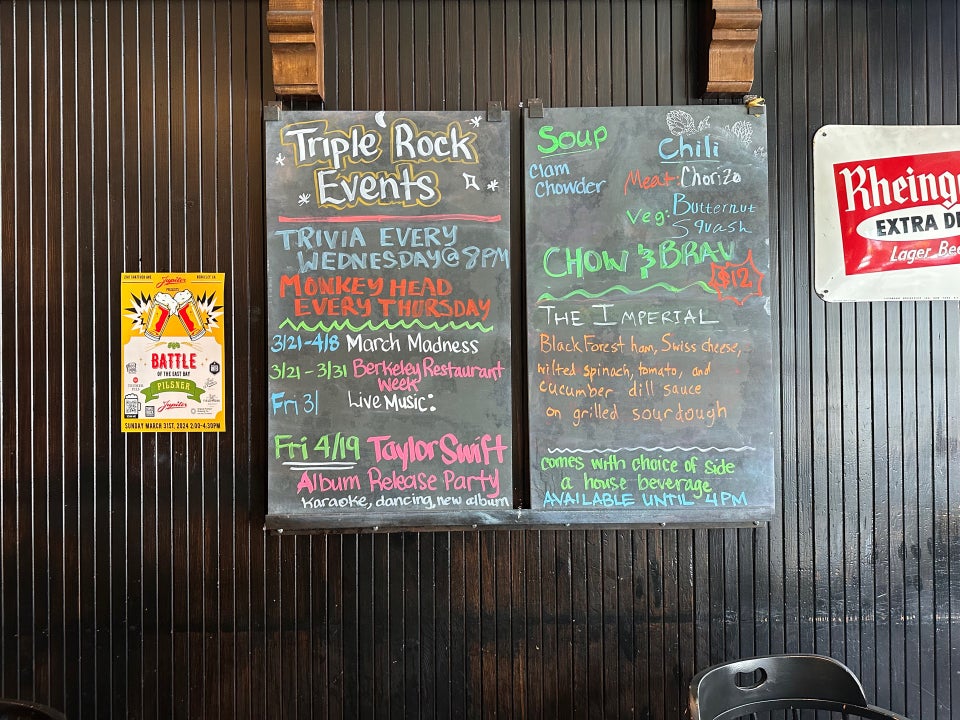 Triple Rock
Events
TRIVIA EVERY
WEDNESDAY@8PM
MONKEY HEAD
EVERY THURSDAY
3/21-4/8 March Madness
3/21-3/31 Berkeley Restaurant
Week
Fri 3/ Live Music:
Fri 4/19 Taylor Swift
Album Release Party
Karaoke, dancing, new album
Soup
Clam
Chowder
Chili
Meat: Chorizo
Veg: Butternut
Squash
CHOW & BRAU
$12
THE IMPERIAL
Black Forest ham, Swiss cheese,
wilted spinach, tomato, and
cucumber dill sauce
on grilled sourdough
comes with choice of side
a house beverage
AVAILABLE UNTIL 4PM
Jupiter
PRESENTS
BATTLE
OF THE EAST BAY
PILSNER
Jupiter
SUNDAY MARCH 31ST, 2024 2:00-4:30PM
Rheing
EXTRA D
Lager Bee